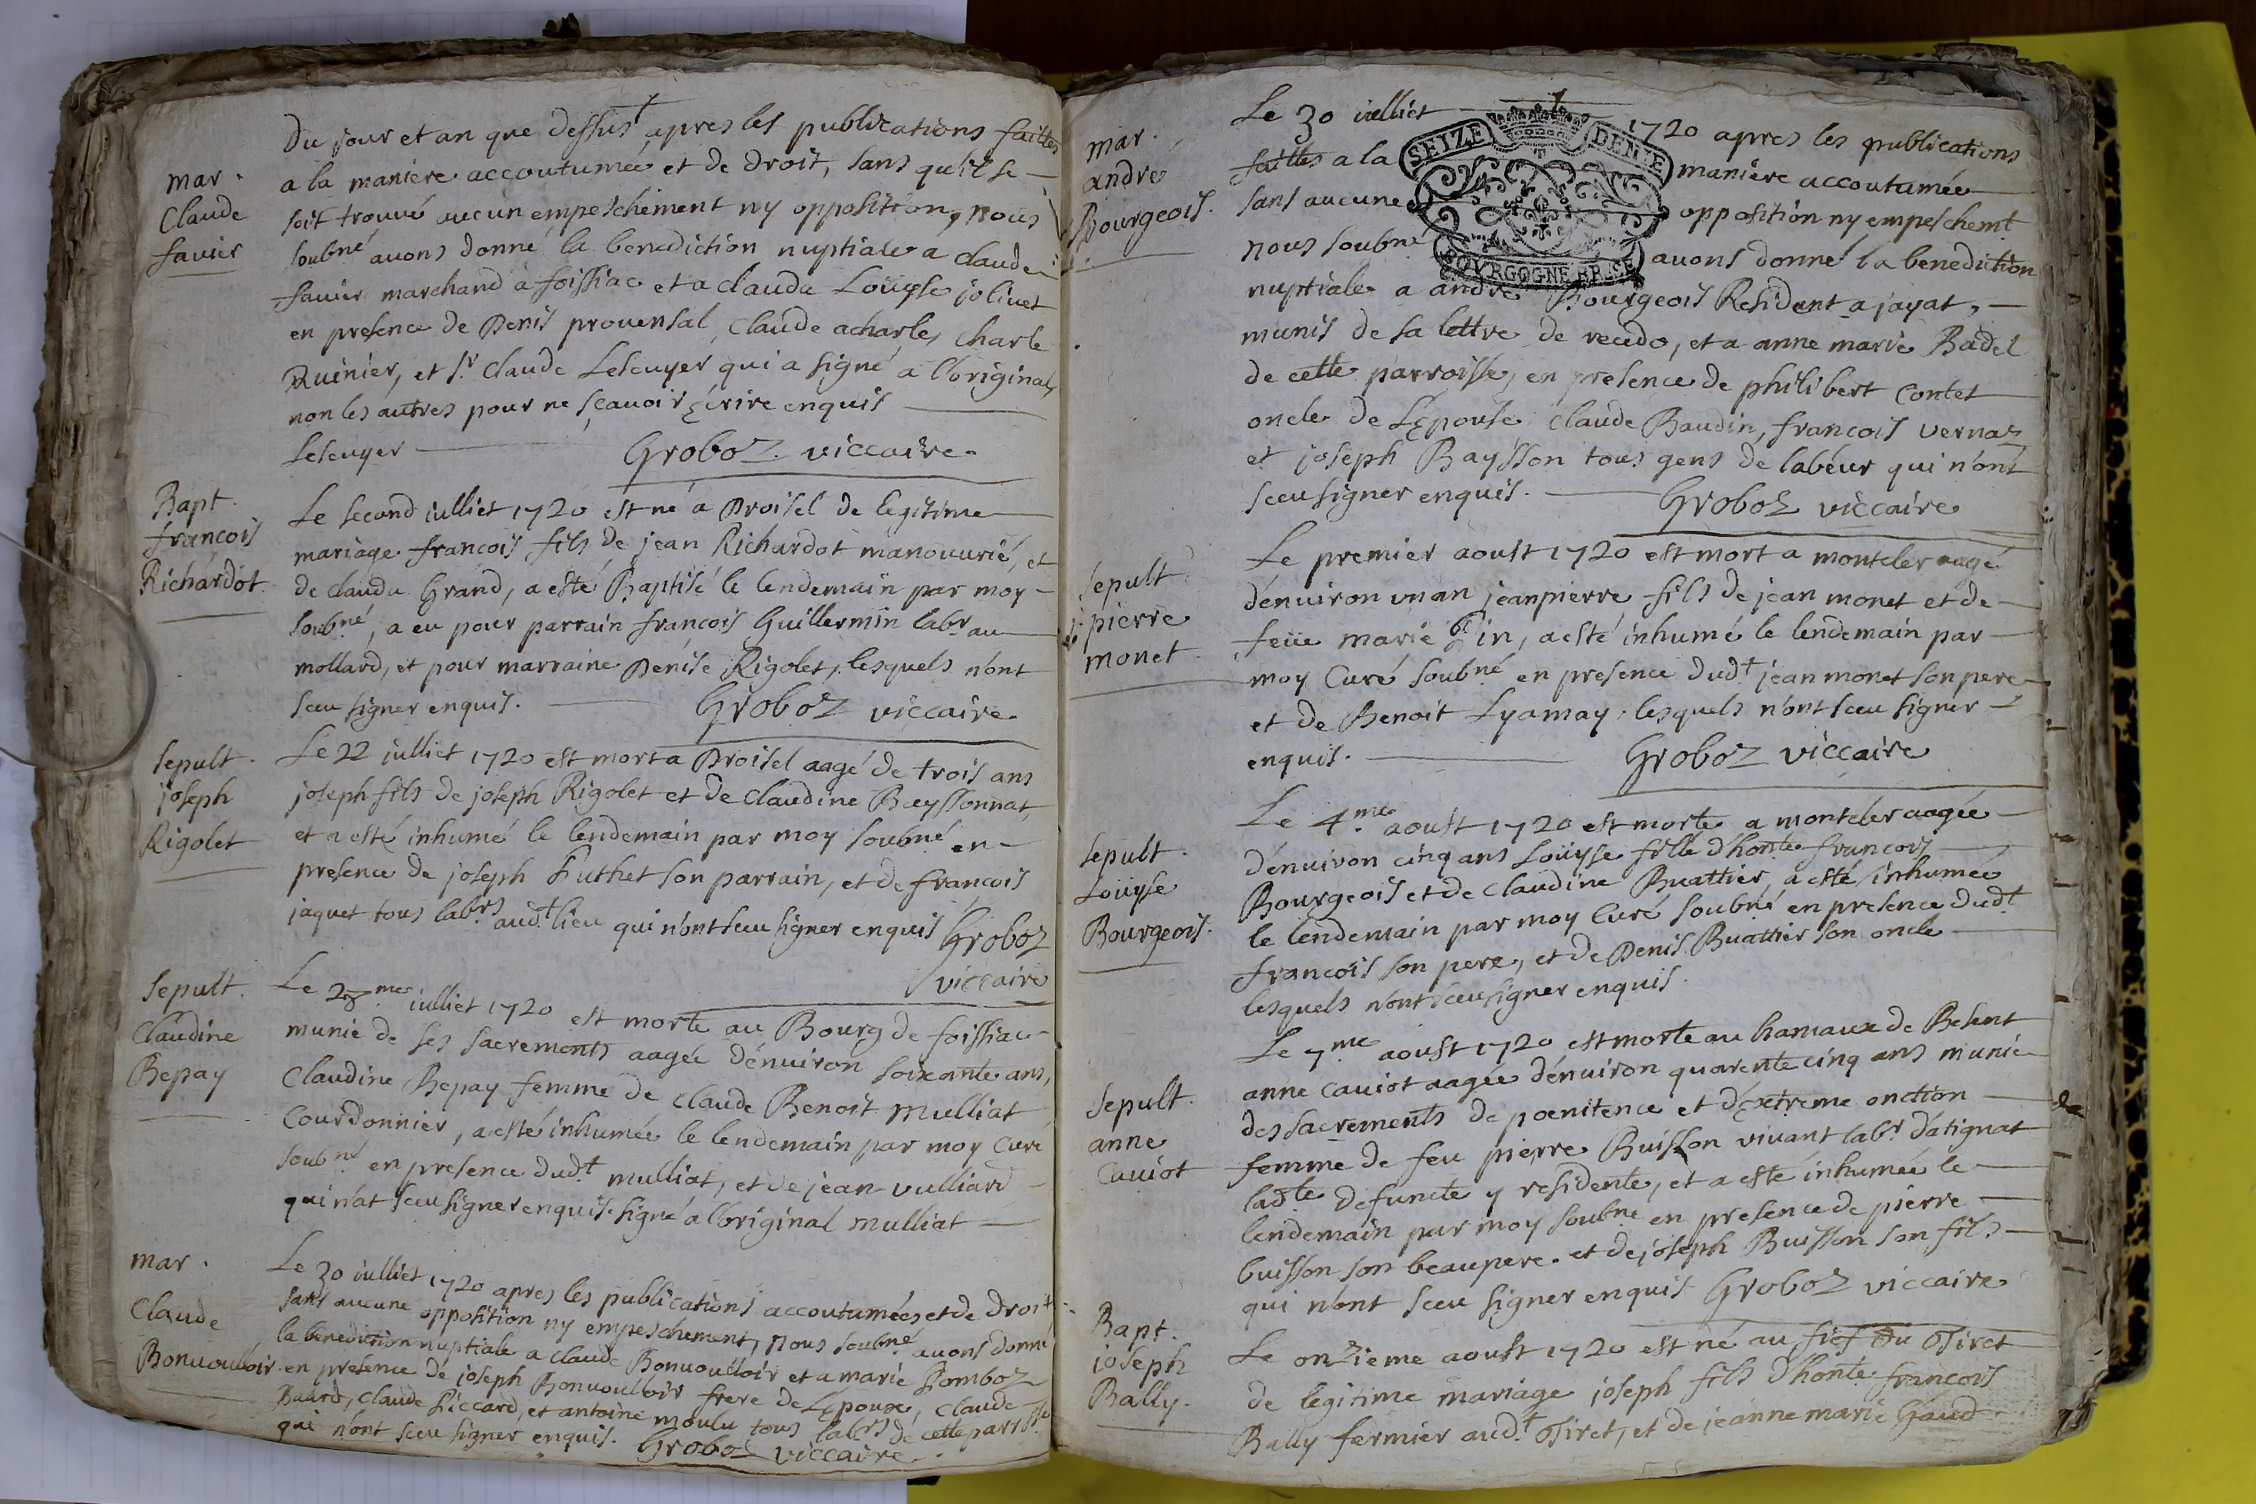 Du jour et an que dessus, apres les publications faittes
mar.
Claude
favier
a la maniere accoutumée et de droit, sans qu'il se
soit trouvé aucun empeschement ny opposition, nous
soubné avons donné la benediction nuptiale a claude
favier marchand à foissiac et a clauda Loüyse jolivet
en presence de Denis provensal, Claude acharle, Charle
Ruinier, et Sr Claude Lescuyer qui a signé a l'original,
non les autres pour ne sçavoir écrire enquis
Lescuyer Groboz viccaire
Bapt.
francois
Richardot
Le second iulliet 1720 est né a Droisel de legitime
mariage francois fils de jean Richardot manouvrié, et
de clauda Grand, a esté Baptisé le lendemain par moy
soubné, a eu pour parrain francois Guillermin labr au
mollard, et pour marraine Denise Rigolet, lesquels n'ont
sceu signer enquis. Groboz viccaire
Sepult.
joseph
Rigolet
Le 22 iulliet 1720 est mort a Droisel aagé de trois ans
joseph fils de joseph Rigolet et de claudine Beyssonnat,
et a esté inhumé le lendemain par moy soubné en
presence de joseph Futhet son parrain, et de francois
jaquet tous labrs audt lieu qui n'ont sceu signer enquis Groboz
viccaire
Sepult.
Claudine
Bepay
Le me iulliet 1720 est morte au Bourg de foissiac
munie de ses sacrements aagée d'enuiron soixante ans,
Claudine Bepay femme de claude Benoit Mulliat
Courdonnier, a esté inhumée le lendemain par moy Curé
soubné en presence dudt mulliat, et de jean vulliard
qui n'at sceu signer enquis. signé a l'original mulliat
mar.
Claude
Bonvouloir
Le 30 iulliet 1720 apres les publications accoutumées et de droit
sans aucune opposition ny empeschement, Nous soubné avons donné
la benediction nuptiale a claude Bonvouloir et a marie Pomboz
en presence de joseph Bonvouloir frere de L'epoux, Claude
Buard, Claude Piccard, et antoine moulu tous labrs de cette parrsse
qui n'ont sceu signer enquis. Groboz viccaire
mar.
andré
Bourgeois.
Le 30 iulliet 1720 apres les publications
SEIZE DENIE
faittes a la maniere accoutumée
sans aucune opposition ny empeschemt
nous soubné avons donné la benediction
BOVRGOGNE BRESE
nuptiale a andré Bourgeois Resident a jayat,
munis de sa lettre de recedo, et a anne marie Badel
de cette parroisse, en presence de philibert Contet
oncle de L'epouse Claude Baudin, francois vernaz
et joseph Baysson tous gens de labeur qui n'ont
sceu signer enquis. Groboz viccaire
Sepult.
j. pierre
monet
Le premier aoust 1720 est mort a montcler aagé
d'enuiron vn an jeanpierre fils de jean monet et de
feüe marie Pin, a esté inhumé le lendemain par
moy Curé soubné en presence dudt jean monet son pere
et de Benoit Lyamay, lesquels n'ont sceu signer
enquis. Groboz viccaire
Sepult.
Loüyse
Bourgeois.
Le 4me aoust 1720 est morte a montcler aagée
d'enuiron cinq ans Loüyse fille d'honte francois
Bourgeois et de claudine Buattier, a esté inhumée
le lendemain par moy Curé soubné en presence dudt
francois son pere, et de Denis Buattier son oncle
lesquels n'ont sceu signer enquis.
Sepult.
anne
Caviot
Le 7me aoust 1720 est morte au hameaux de Besent
anne caviot aagée d'enuiron quarente cinq ans munie
des sacrements de poenitence et d'extreme onction
femme de feu pierre Buisson vivant labr d'atignat
ladte defuncte y residente, et a esté inhumée le
lendemain par moy soubné en presence de pierre
buisson son beaupere. et de joseph Buisson son fils
qui n'ont sceu signer enquis Groboz viccaire
Bapt.
joseph
Bally.
Le onzieme aoust 1720 est né au fief du Tiret
de legitime mariage joseph fils d'honte francois
Bally fermier audt Tiret, et de jeanne marie Gaud